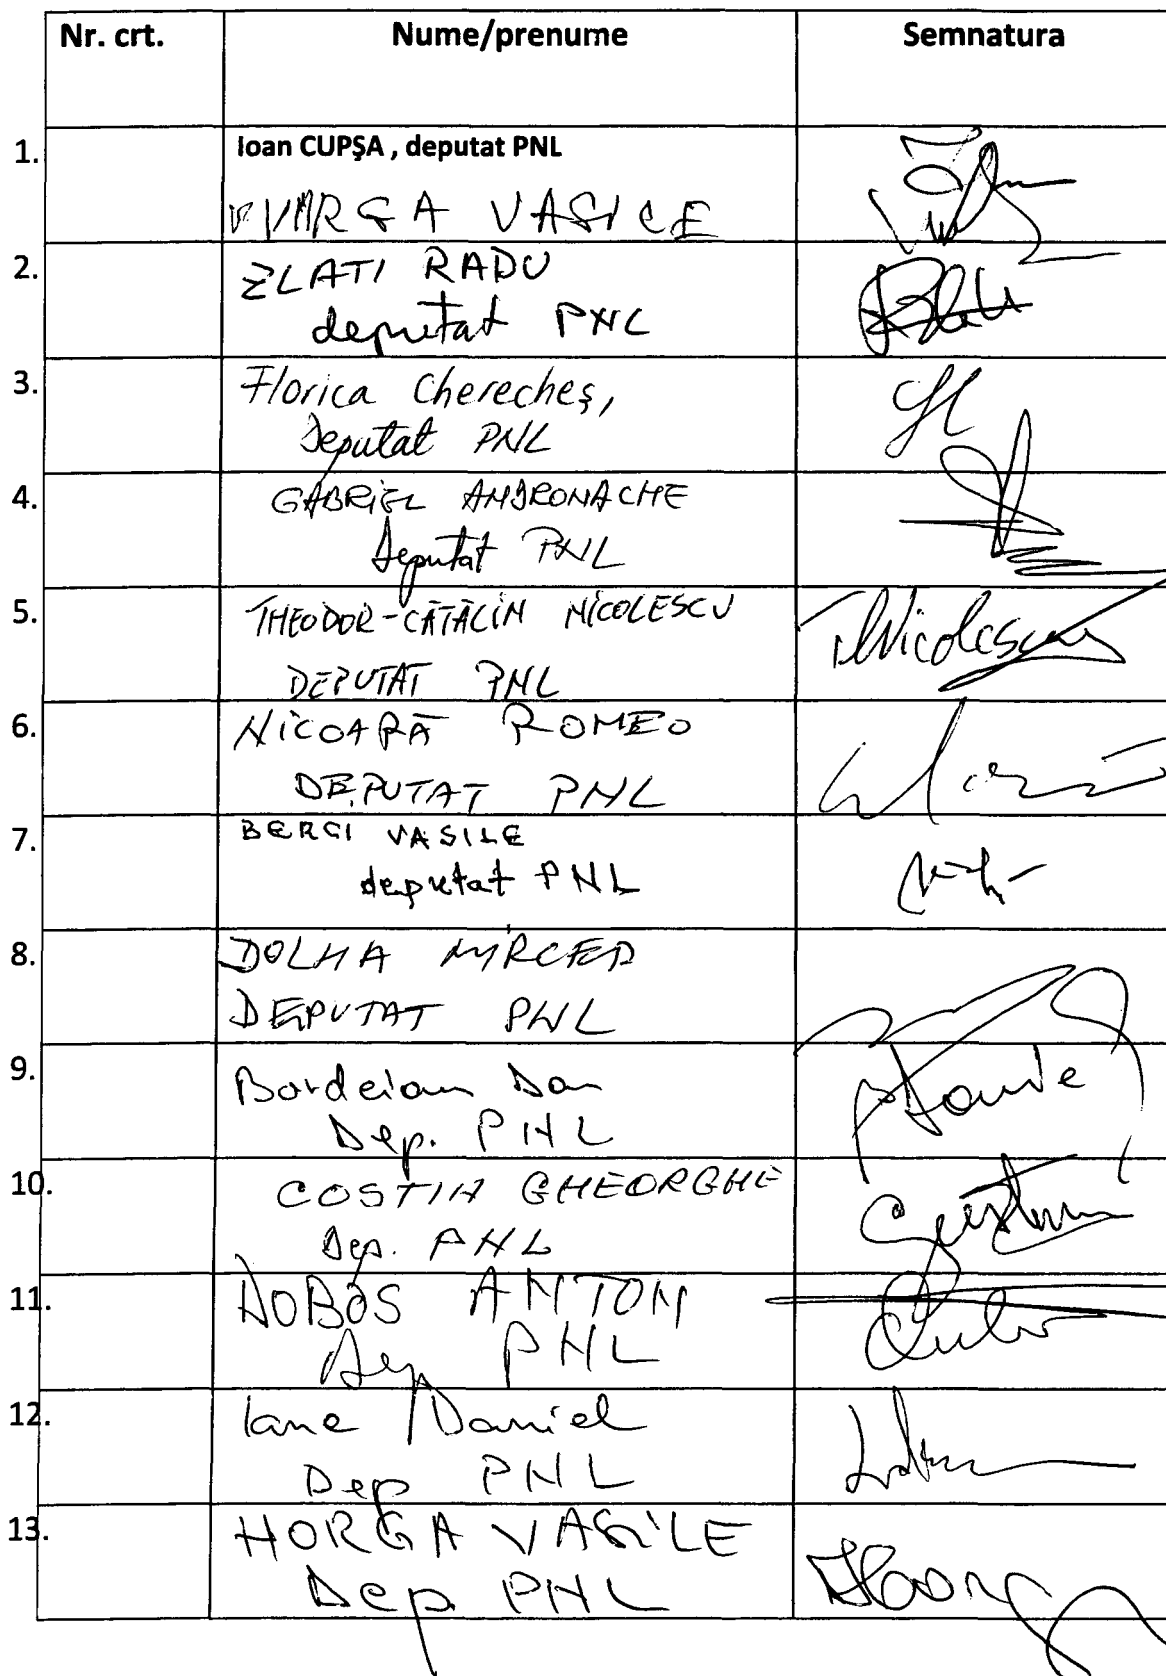 Nr. crt. Nume/prenume Semnatura
1. Ioan CUPŞA , deputat PNL
VARGA VASILE
2. ZLATI RADU
deputat PNL
3. Florica Cherecheş,
Deputat PNL
4. GABRIEL ANDRONACHE
Deputat PNL
5. THEODOR-CĂTĂLIN NICOLESCU TNicolescu
DEPUTAT PNL
6. NICOARĂ ROMEO
DEPUTAT PNL
7. BERCI VASILE
deputat PNL
8. DOLHA MIRCEA
DEPUTAT PNL
9. Bordeianu Dan
Dep. PNL
10. COSTIN GHEORGHE
Dep. PNL
11. DOBOS ANTON
Dep PNL
12. Iane Daniel
Dep PNL
13. HORGA VASILE
Dep PNL